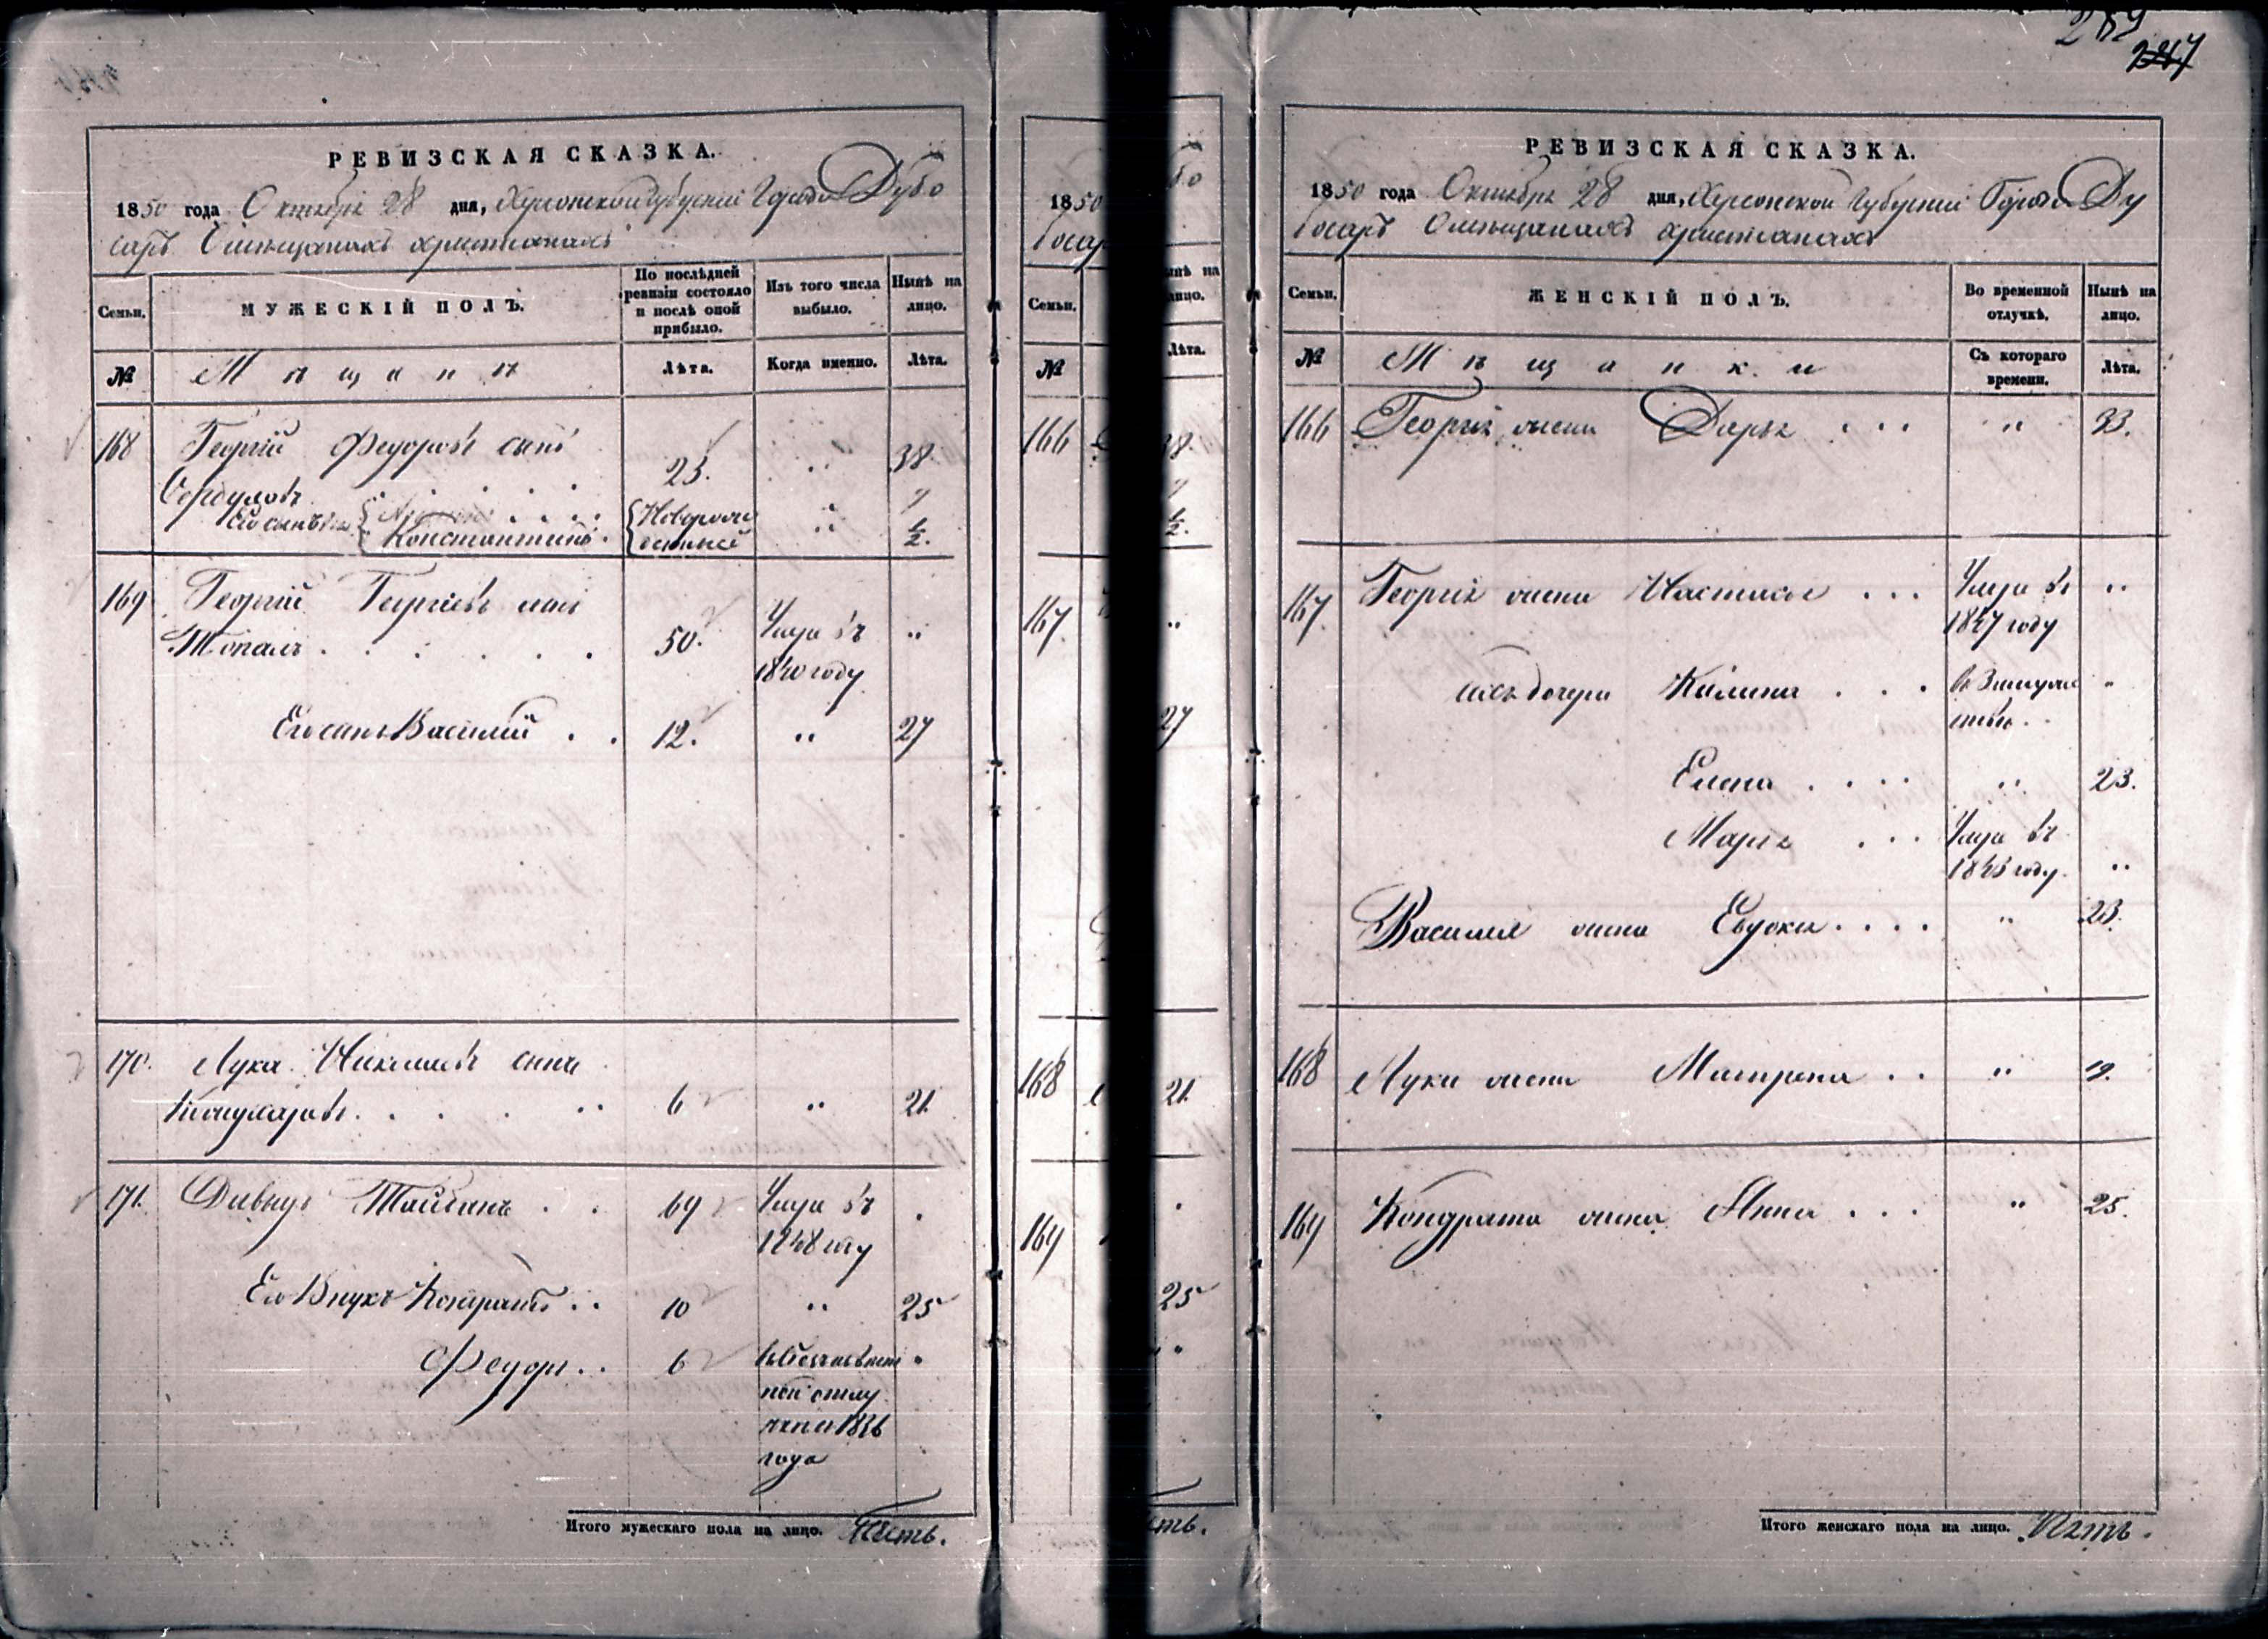 РЕВИЗСКАЯ СКАЗКА.
1850 года Октября 28 дня, Херсонской Губерніи Города Дубо
саръ О мѣщанахъ христіанахъ
Семьи. МУЖЕСКІЙ ПОЛЪ. По послѣдней ревизіи состояло и послѣ оной прибыло. Изъ того числа выбыло. Нынѣ на лицо.
№ Мѣщане Лѣта. Когда именно. Лѣта.
168 Георгій Федоровъ сынъ
23. " 38.
Его сыновья
Константинъ. Новорож денные " ½.
169 Георгій Георгіевъ сынъ
Топалъ . . . . . . 50. Умре въ "
1840 году
Его сынъ Василій . . 12. " 27
170. Лука Николаевъ сынъ
. . . . 6 " 21.
171. Тайганъ . . 69 Умре въ .
1848 году
Его Внукъ Кондратъ . . 10 " 25
Федоръ . . 6 въ безъизвѣст "
ной отлу
чки с 1836
года
Итого мужескаго пола на лицо. Пять.
1850
босар
Семьи. нѣ на
лицо.
№ Лѣта.
166 38.
½.
167. "
27
168 21.
169 .
25
"
ять.
259
247
РЕВИЗСКАЯ СКАЗКА.
1850 года Октября 28 дня, Херсонской Губерніи Города Ду
босаръ О мѣщанахъ христіанахъ
Семьи. ЖЕНСКІЙ ПОЛЪ. Во временной отлучкѣ. Нынѣ на лицо.
№ Мѣщанки Съ котораго времени. Лѣта.
166 Георгія жена Дарья . . . " 33.
167. Георгія жена Настасья . . . Умре въ "
1847 году
ихъ дочери Калина . . . въ замуже "
ствѣ . .
Елена . . . . " 23.
Марія . . . Умре въ
1845 году. "
Василія жена Евдокія . . . . " 23.
168 Луки жена Матрена . . " 19.
169 Кондрата жена Анна . . . " 25.
Итого женскаго пола на лицо. Пять.